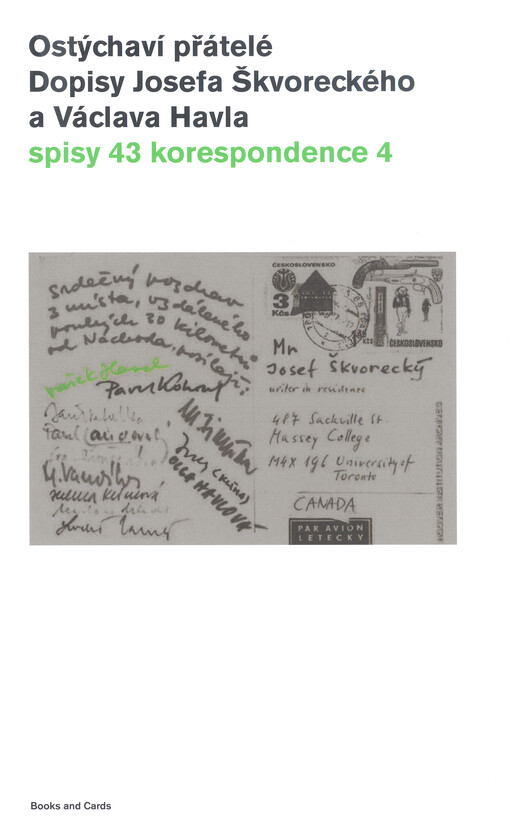 Ostýchaví přátelé
Dopisy Josefa Škvoreckého
a Václava Havla
spisy 43 korespondence 4
Srdečný pozdrav
z místa, vzdáleného
pouhých 30 kilometrů
od Náchoda, posílají:
Pavel Kohout
OLGA HAVLOVÁ
ČESKOSLOVENSKO
3
Kčs
Kčs
ČESKOSLOVENSKO
Mr
Josef Škvorecký
writer in residence
487 Sackville St.
Massey College
M4X 1G6 University of
Toronto
CANADA
PAR AVION
LETECKY
Books and Cards